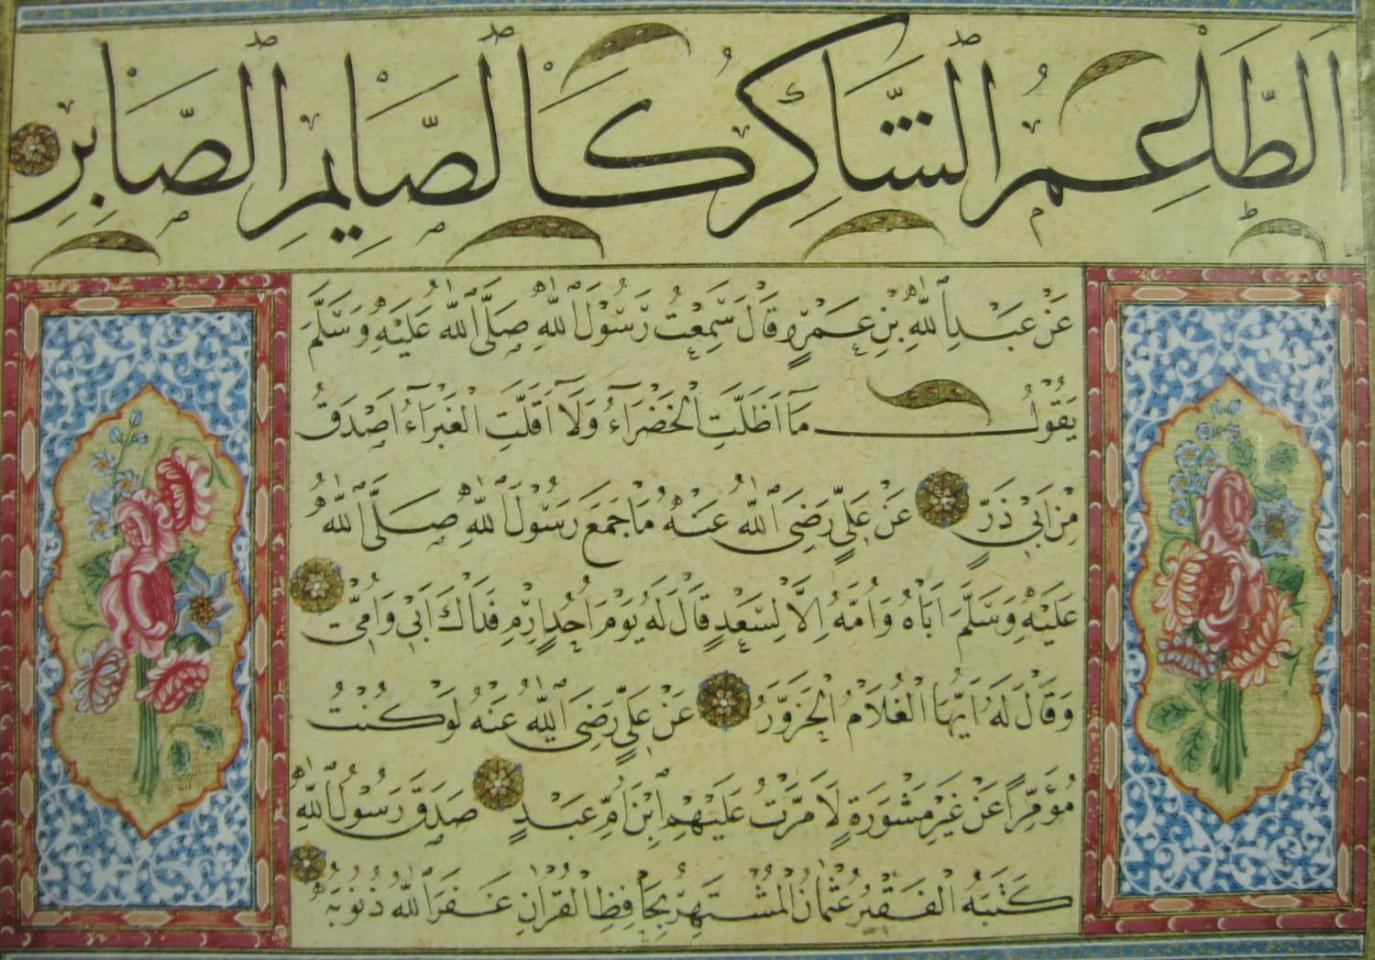 اَلطَّاعِمُ الشَّاكِرُ كَالصَّايِمِ الصَّابِرِ
عَنْ عَبْدِ اللّٰهِ بْنِ عَمْرٍو قَالَ سَمِعْتُ رَسُوْلَ اللّٰهِ صَلَّى اللّٰهُ عَلَيْهِ وَسَلَّمَ
يَقُوْلُ مَا اَظَلَّتِ الْخَضْرَآءُ وَلَا اَقَلَّتِ الْغَبْرَآءُ اَصْدَقُ
مِنْ اَبِيْ ذَرٍّ عَنْ عَلِيٍّ رَضِيَ اللّٰهُ عَنْهُ مَا جَمَعَ رَسُوْلُ اللّٰهِ صَلَّى اللّٰهُ
عَلَيْهِ وَسَلَّمَ اَبَاهُ وَاُمَّهُ اِلَّا لِسَعْدٍ قَالَ لَهُ يَوْمَ اُحُدٍ اِرْمِ فَدَاكَ اَبِيْ وَاُمِّيْ
وَقَالَ لَهُ اَيُّهَا الْغُلَامُ الْحَزَوَّرُ عَنْ عَلِيٍّ رَضِيَ اللّٰهُ عَنْهُ لَوْ كُنْتُ
مُؤَمِّرًا عَنْ غَيْرِ مَشْوَرَةٍ لَاَمَّرْتُ عَلَيْهِمِ ابْنَ اُمِّ عَبْدٍ صَدَقَ رَسُوْلُ اللّٰهِ
كَتَبَهُ الْفَقِيْرُ عُثْمَانُ الْمُشْتَهِرُ بِحَافِظِ الْقُرْاٰنِ غَفَرَ اللّٰهُ ذُنُوْبَهُ